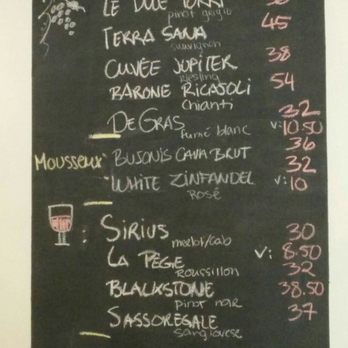 LE DUE TORRI
pinot grigio
TERRA SANA 45
sauvignon
CUVÉE JUPITER 38
riesling
BARONE RICASOLI 54
chianti
DE GRAS 32
fumé blanc V: 10.50
MOUSSEUX BUSONIS CAVA BRUT 36
32
WHITE ZINFANDEL V: 10
ROSÉ
: SIRIUS 30
merlot/cab V: 8.50
LA PEGE 32
roussillon
BLACKSTONE 38.50
pinot noir
SASSOREGALE 37
sangiovese